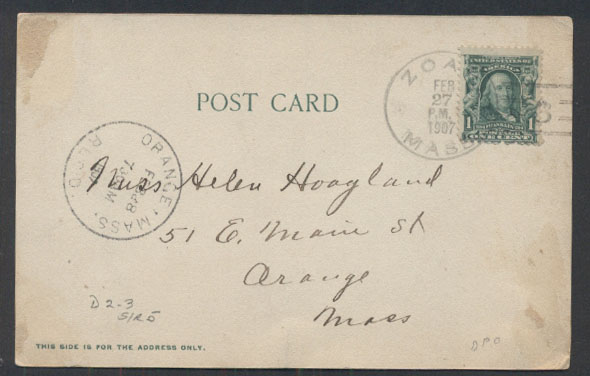 ZOA
FEB
27
P.M.
1907
MASS
UNITED STATES OF
AMERICA
1 1
ONE CENT
POST CARD
ORANGE, MASS.
FEB 28
REC'D.
Miss Helen Hoagland
51 E. Main St
Orange
Mass
D 2-3
S/R 5
DPO
THIS SIDE IS FOR THE ADDRESS ONLY.